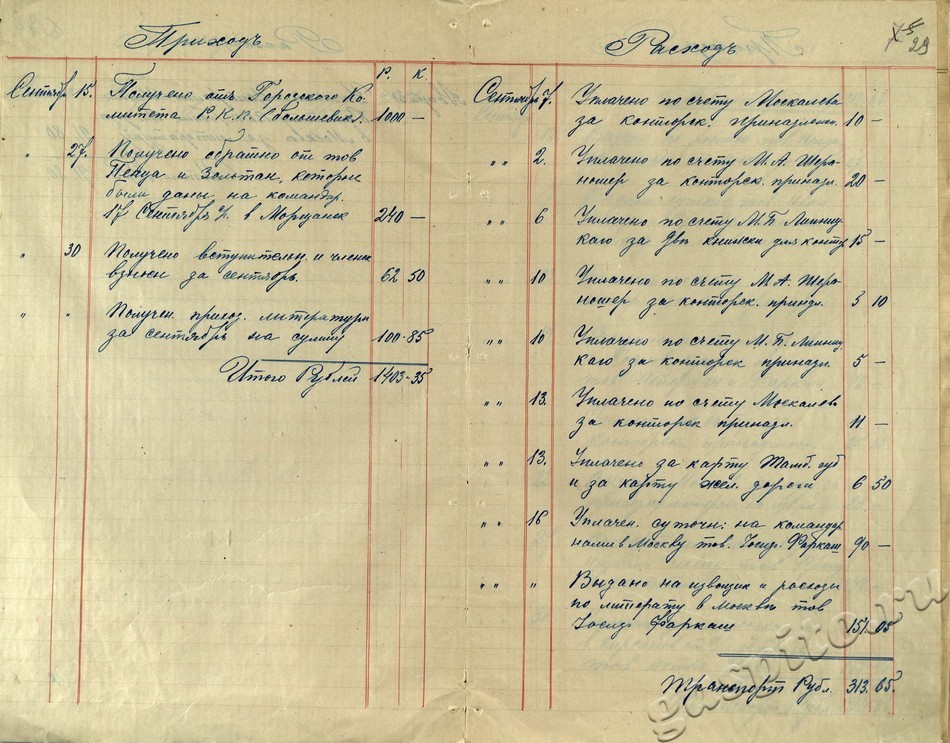 Приходъ
Р. К.
Сентябрь 15. Получено отъ Городского Ко-
митета Р.К.П. (большевик.). 1000 —
" 27. Получено обратно от тов
и Золтан, которые
были даны на командир.
17 Сентября с/г. в Моршанск 240 —
" 30 Получено вступительн. и членск
взносы за сентябрь. 62 50
" " Получен. приход. литературы
за сентябрь на сумму 100-85
Итого Рублей 1403-35
Расходъ
29
Сентябрь 7. Уплачено по счету Москалева
за конторск. принадлежн. 10 —
" " 2. Уплачено по счету М. А. Шере-
ношер за конторск. принадл. 20 —
" " 6 Уплачено по счету М. Б. Линниц-
каго за двѣ книжки для контр 15 —
" " 10 Уплачено по счету М. А. Шере-
ношер за конторск. принадл. 5 10
" " 10 Уплачено по счету М. Б. Линниц-
каго за конторск. принадл. 5 —
" " 13. Уплачено по счету Москалева
за конторск принадл. 11 —
" " 13. Уплачено за карту Тамб. губ
и за карту жел. дороги 6 50
" " 16 Уплачен. суточн: на командир
в Москву тов. Иосиф. Фаркаш 90 —
" " " Выдано на извощик и расходы
по литерату в Москвѣ тов
Иосиф Фаркаш 151. 05
Транспорт Рубл. 313. 65
gaspito.ru